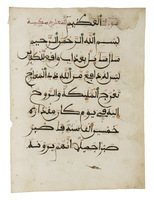 العظيم
بسم الله الرحمن الرحيم
سال سايل بعذاب واقع للكفرين
ليس له دافع من الله ذي المعارج
تعرج الملئكة والروح
اليه في يوم كان مقداره
خمسين الف سنة فاصبر
صبرا جميلا انهم يرونه